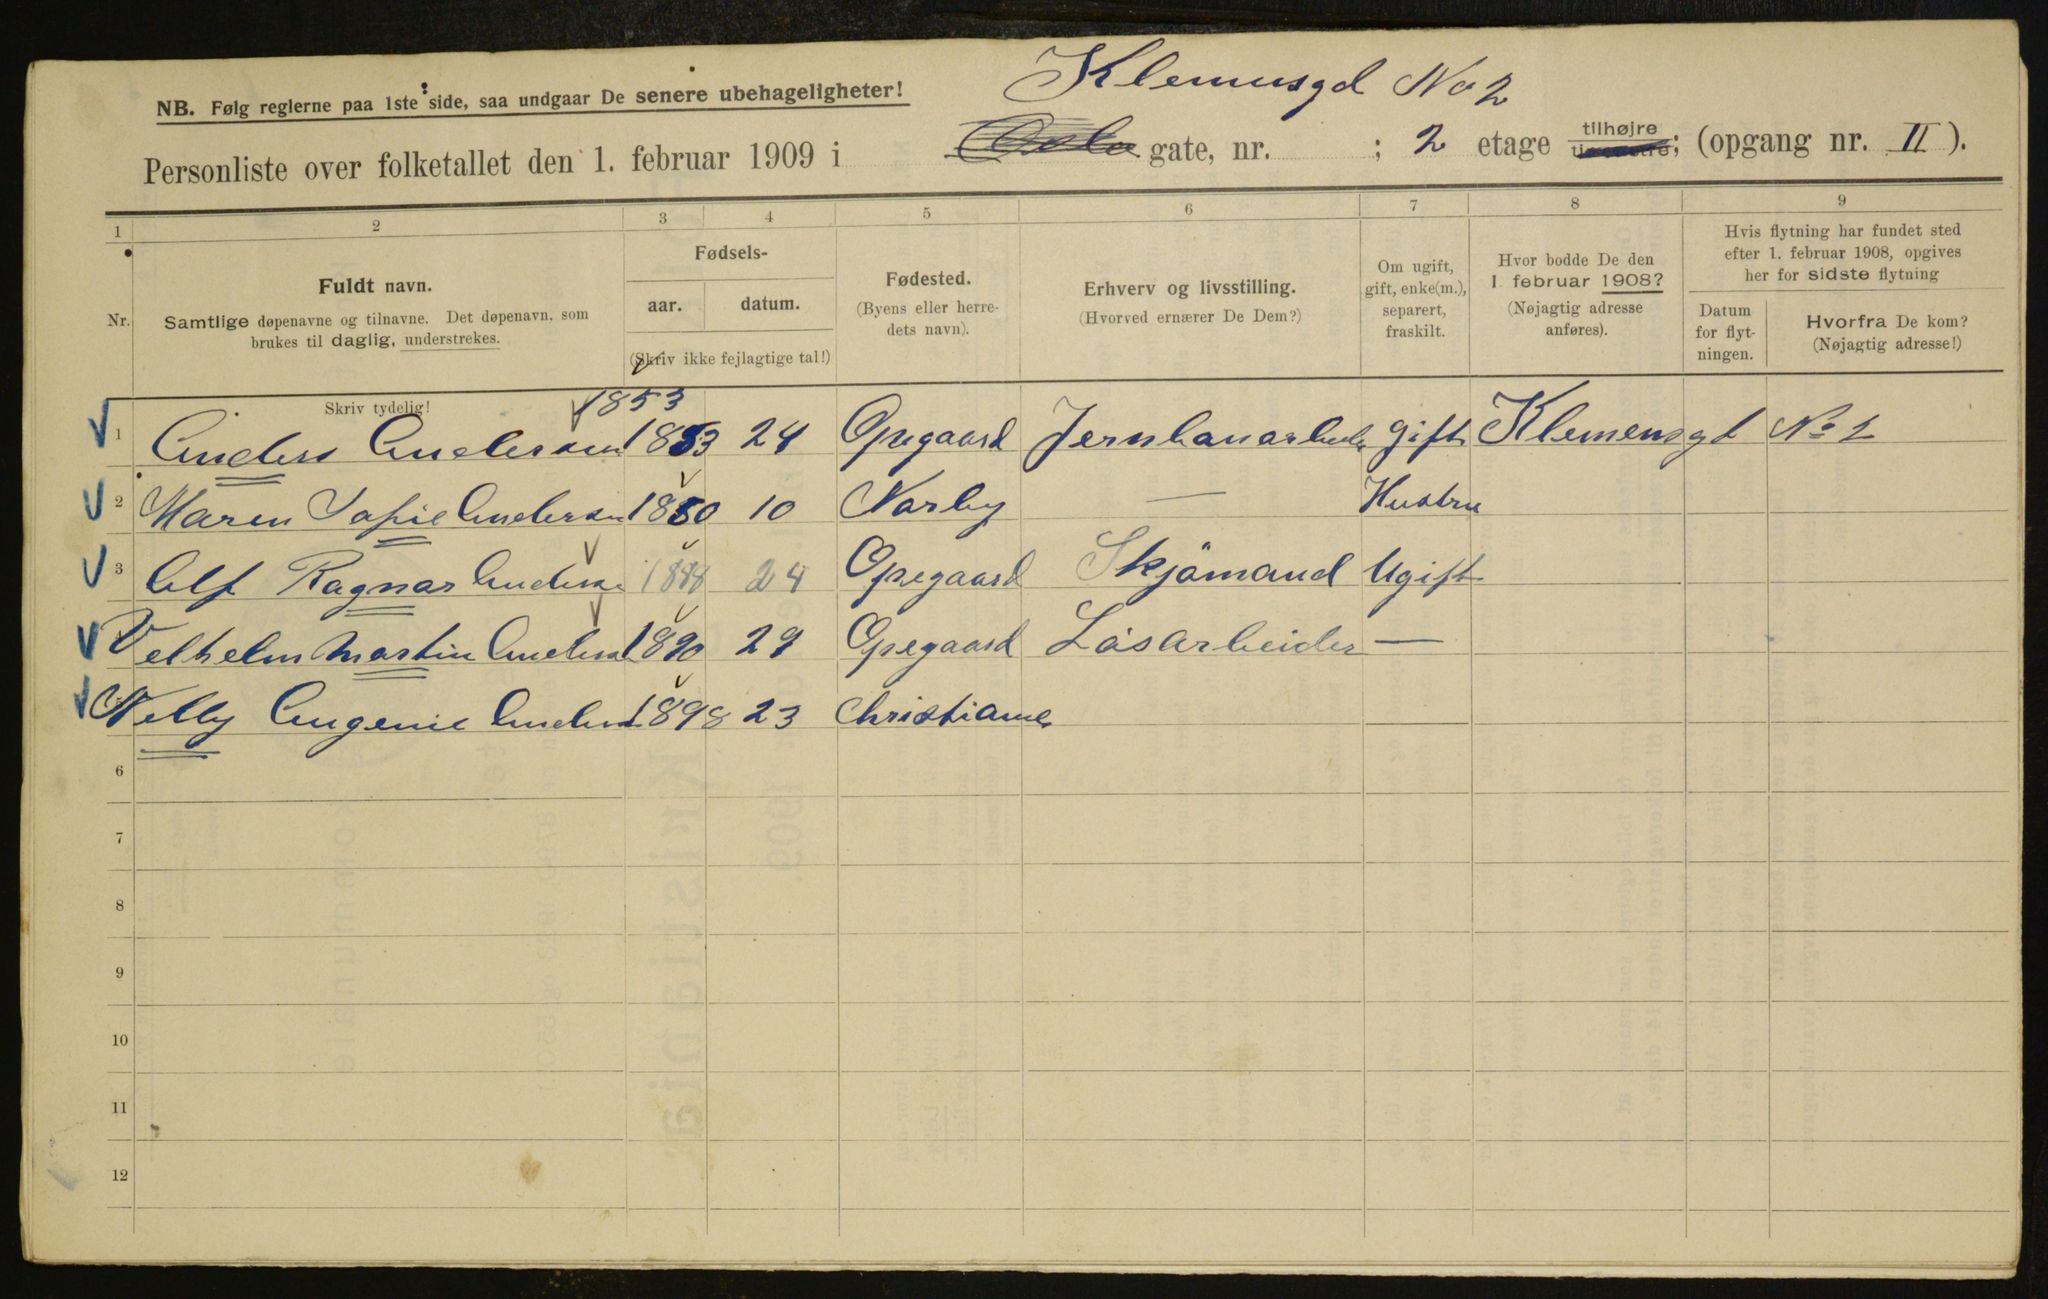 Klemusgd No 2
NB. Følg reglerne paa 1ste side, saa undgaar De senere ubehageligheter!
Personliste over folketallet den 1. februar 1909 i Oslo gate, nr. ; 2 etage tilhøjre; (opgang nr. II).
1 2 3 4 5 6 7 8 9
Nr.
Fuldt navn.
Samtlige døpenavne og tilnavne. Det døpenavn, som
brukes til daglig, understrekes.
Skriv tydelig!
Fødsels-
aar. datum.
(Skriv ikke fejlagtige tal!)
Fødested.
(Byens eller herre-
dets navn).
Erhverv og livsstilling.
(Hvorved ernærer De Dem?)
Om ugift,
gift, enke(m.),
separert,
fraskilt.
Hvor bodde De den
1. februar 1908?
(Nøjagtig adresse
anføres).
Hvis flytning har fundet sted
efter 1. februar 1908, opgives
her for sidste flytning
Datum
for flyt-
ningen.
Hvorfra De kom?
(Nøjagtig adresse!)
1853
1 Anders Andersen 1853 24 Opegaard Jernbanarbeider gift Klemensgd No 2
2 Maren Sofie Andersen 1850 10 Norby — Hustru
3 Alf Ragnar Andersen 1888 24 Opegaard Skjömand Ugift
Velhelm Martin Andersen 1890 29 Opegaard Løsarbeider —
Nelly Eugenie Andersen 1898 23 Christiania
6
7
8
9
10
11
12